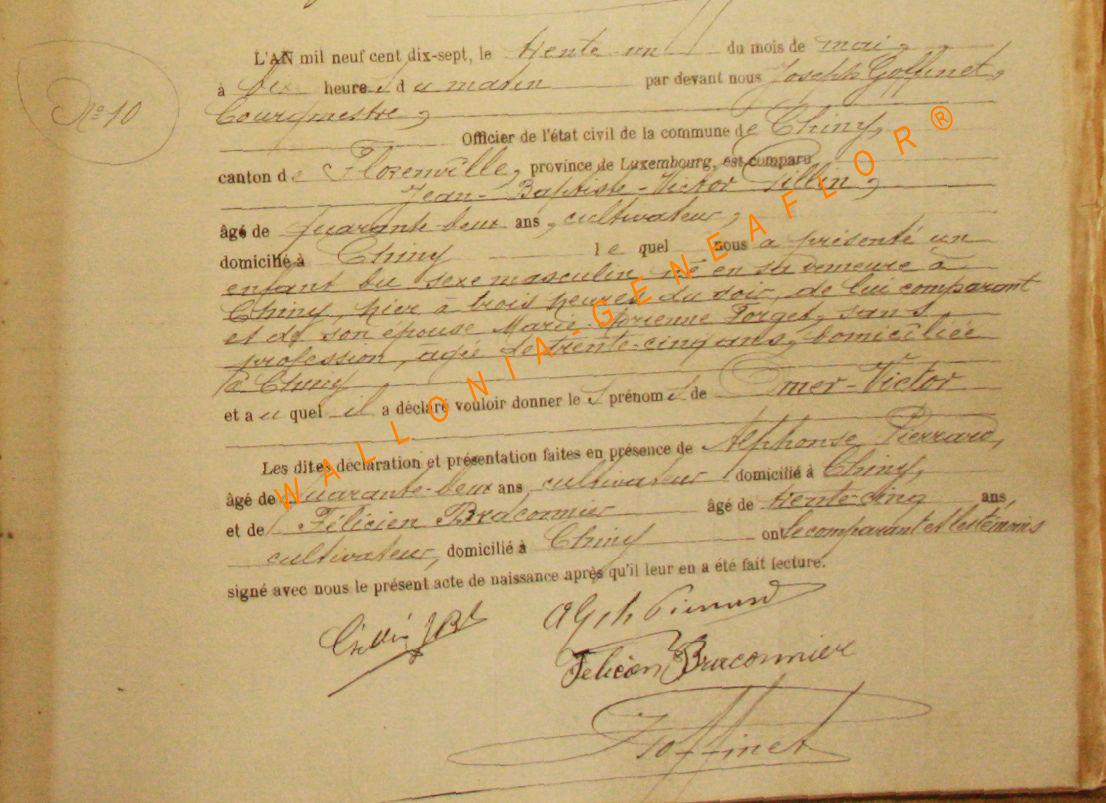 N° 10
L'AN mil neuf cent dix-sept, le trente un du mois de mai,
à dix heures du matin par devant nous Joseph Goffinet,
bourgmestre,
Officier de l'état civil de la commune de Chiny,
canton de Florenville, province de Luxembourg, est comparu
Jean-Baptiste-Victor Pillin,
âgé de quarante-deux ans, cultivateur,
domicilié à Chiny le quel nous a présenté un
enfant du sexe masculin né en sa demeure à
Chiny, hier à trois heures du soir, de lui comparant
et de son épouse Marie-Adrienne Porget, sans
profession, agée de trente-cinq ans, domiciliée
à Chiny
et au quel il a déclaré vouloir donner les prénoms de Omer-Victor
Les dites déclaration et présentation faites en présence de Alphonse Pierrard,
âgé de quarante-deux ans, cultivateur domicilié à Chiny,
et de Félicien Braconnier âgé de trente-cinq ans,
cultivateur, domicilié à Chiny ont le comparant et les témoins
signé avec nous le présent acte de naissance après qu'il leur en a été fait lecture.
Alph Pierrard
Felicien Braconnier
J Goffinet
WALLONIA-GENEAFLOR®